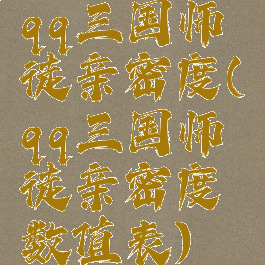 qq三国师
徒亲密度(
qq三国师
徒亲密度
数值表)